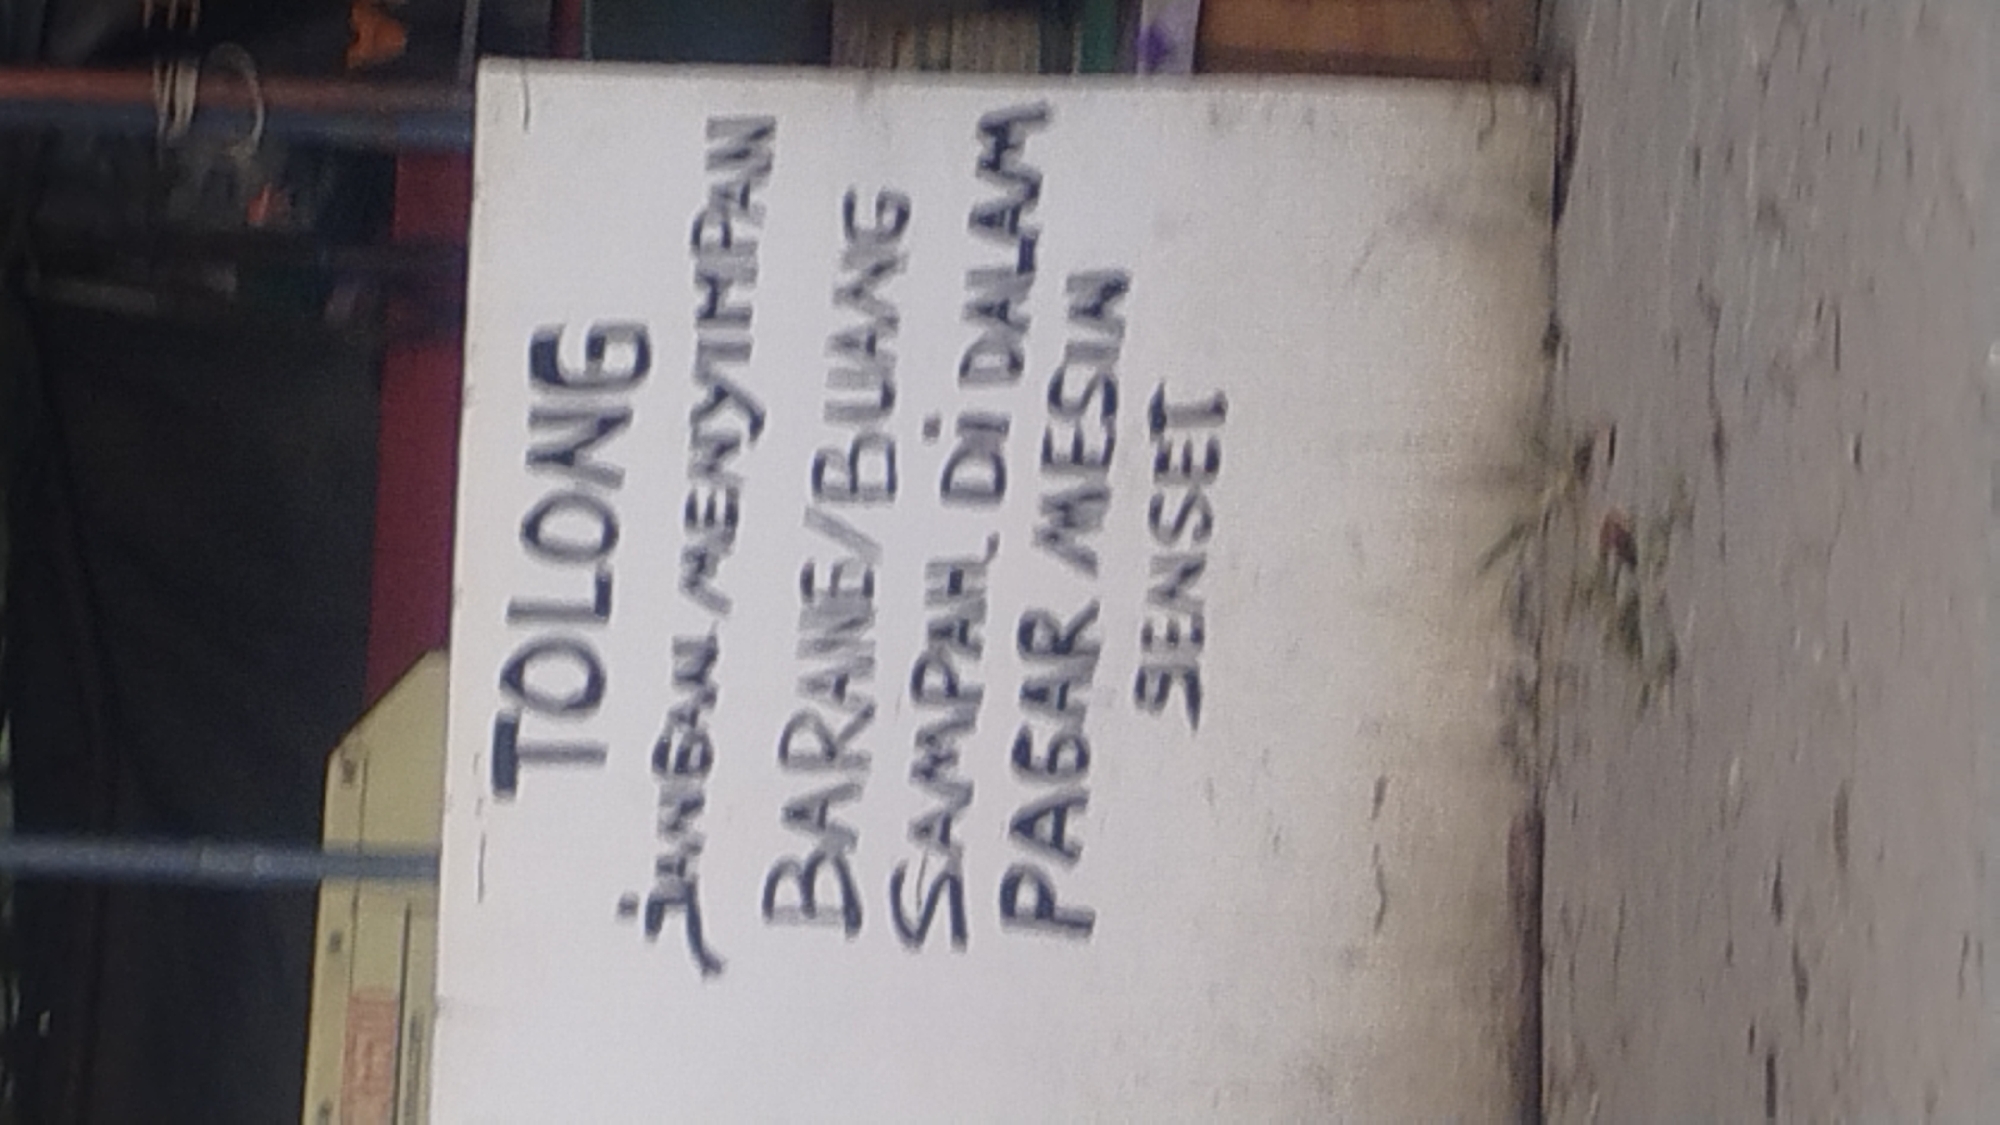 TOLONG
JANGAN MENYIMPAN
BARANG/BUANG
SAMPAH DI DALAM
PAGAR MESIN
SENSET